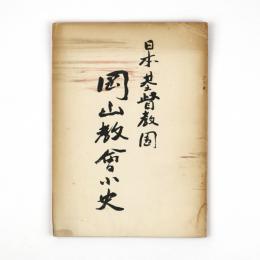 日本基督教団
岡山教會小史